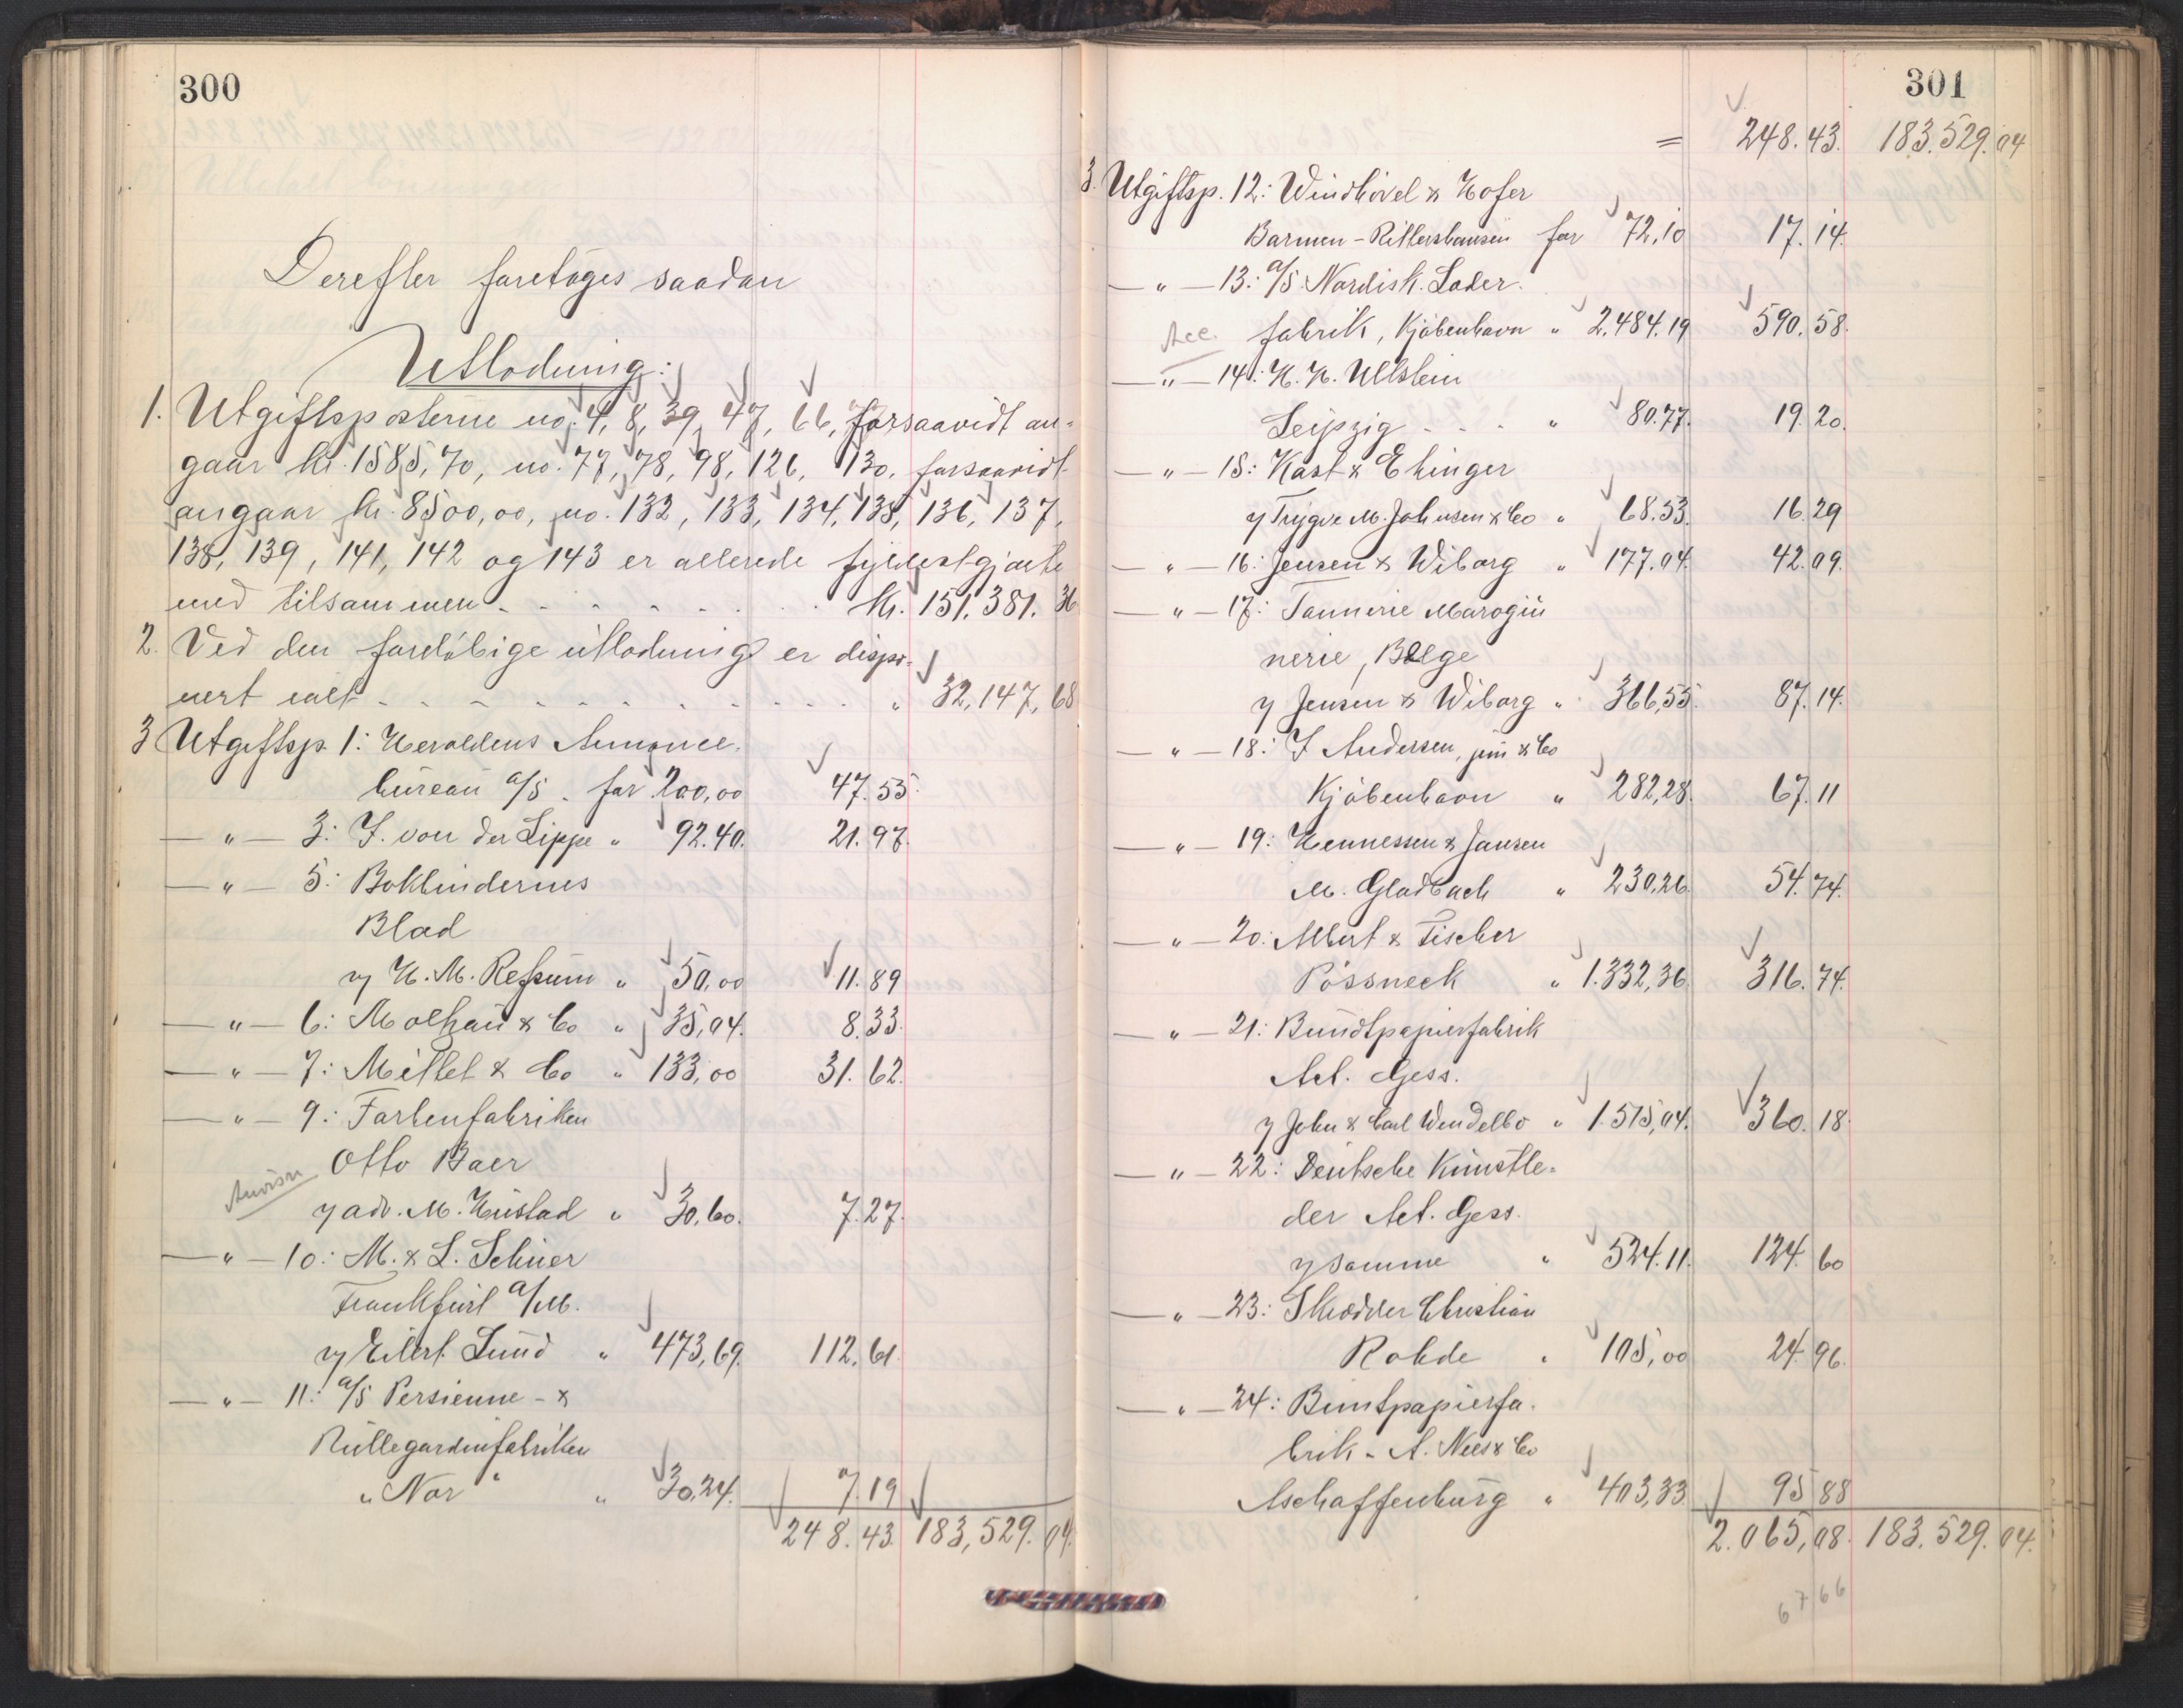 300
Derefter foretoges saadan
Utlodning:
1. Utgiftsposterne no. 4, 8, 39, 47, 66, forsaavidt an-
gaar kr. 1585,70, no. 77, 78, 98, 126, 130, forsaavidt
angaar kr. 8500,00, no. 132, 133, 134, 135, 136, 137,
138, 139, 141, 142 og 143 er allerede fyldestgjorte
med tilsammen - - - - - - kr. 151.381.36
2. Ved den foreløbige utlodning er dispo-
nert ialt - - - - - - - - - " 32,147,68
3 Utgiftsp. 1: Heroldens Annonce.
bureau a/s. for 200,00 47.55.
— " — 3: F. von der Lippe " 92.40. 21.97.
— " — 5: Bokbindernes
Blad
v/ H. M. Refsum " 50,00 11.89
— " — 6: Molzau & Co " 35,04. 8.33.
— " — 7: Mittet & Co " 133,00 31.62.
— " — 9: Farbenfabriken
Otto Baer
Anvisn
v/ adv. M. Hustad " 30,60. 7.27.
— " — 10: M. & L. Schuer
Frankfurt a/M.
v/ Eilert Lund " 473,69. 112.61.
— " — 11: a/s Persienne- &
Rullegardinfabriken
"Nor" " 30,24. 7.19
248.43. 183,529.04.
301
= 248.43. 183.529.04
3. Utgiftsp. 12: Windhövel & Hofer
Barmen-Rittershausen for 72,10 17.14.
— " — 13: a/s. Nordisk. Læder.
Acc. fabrik, Kjøbenhavn " 2.484.19 590.58.
— " — 14: H. H. Ullstein
Leipzig - - - " 80.77. 19.20.
— " — 15: Kast & Ehinger
v/ Trygve M. Johnsen & Co " 68.53. 16.29
— " — 16: Jensen & Wiborg " 177.04. 42.09.
— " — 17: Tannerie Maroqui
nerie, Belge
v/ Jensen & Wiborg " 366,55. 87.14.
— " — 18: J Andersen, jun & Co
Kjøbenhavn " 282,28. 67.11
— " — 19: Hennessen & Jansen
M. Gladbach " 230,26 54.74.
— " — 20: Albert & Fischer
Pössneck " 1.332,36 316.74.
— " — 21: Bundtpapierfabrik
Act. Gess.
v/ John & Carl Wendelbo " 1.515,04. 360.18.
— " — 22: Deutsche Kunstle-
der Act. Gess.
v/ samme " 524.11. 124.60
— " — 23: Skrædder Christian
Rohde " 105,00 24.96.
— " — 24: Buntpapierfa-
brik - A. Nees & Co
Aschaffenburg " 403,33 95.88
2.065,08. 183.529.04.
6766